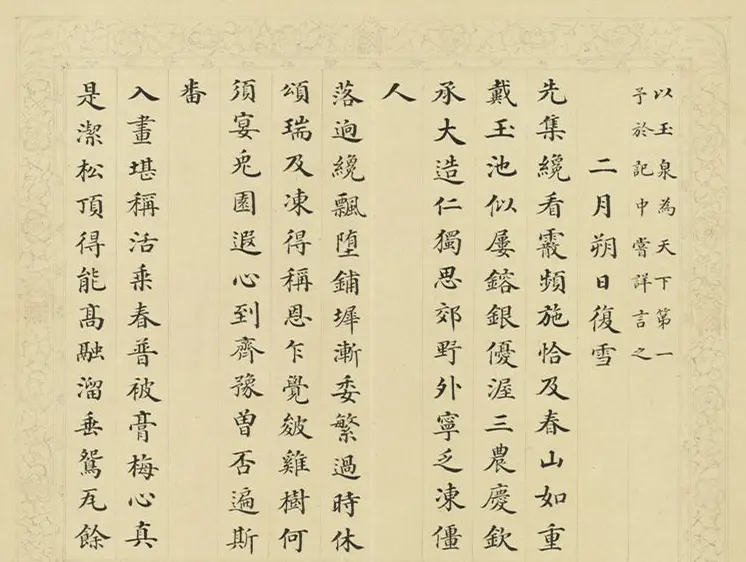 以玉泉為天下第一
予於記中嘗詳言之
二月朔日復雪
先集纔看霰頻施恰及春山如重
戴玉池似屢鎔銀優渥三農慶欽
承大造仁獨思郊野外寧乏凍僵
人
落逈纔飄墮鋪墀漸委繁過時休
頌瑞及凍得稱恩乍覺皴雞樹何
須宴兎園遐心到齊豫曽否遍斯
畨
入畫堪稱活乗春普被膏梅心真
是潔松頂得能髙融溜垂鴛瓦餘